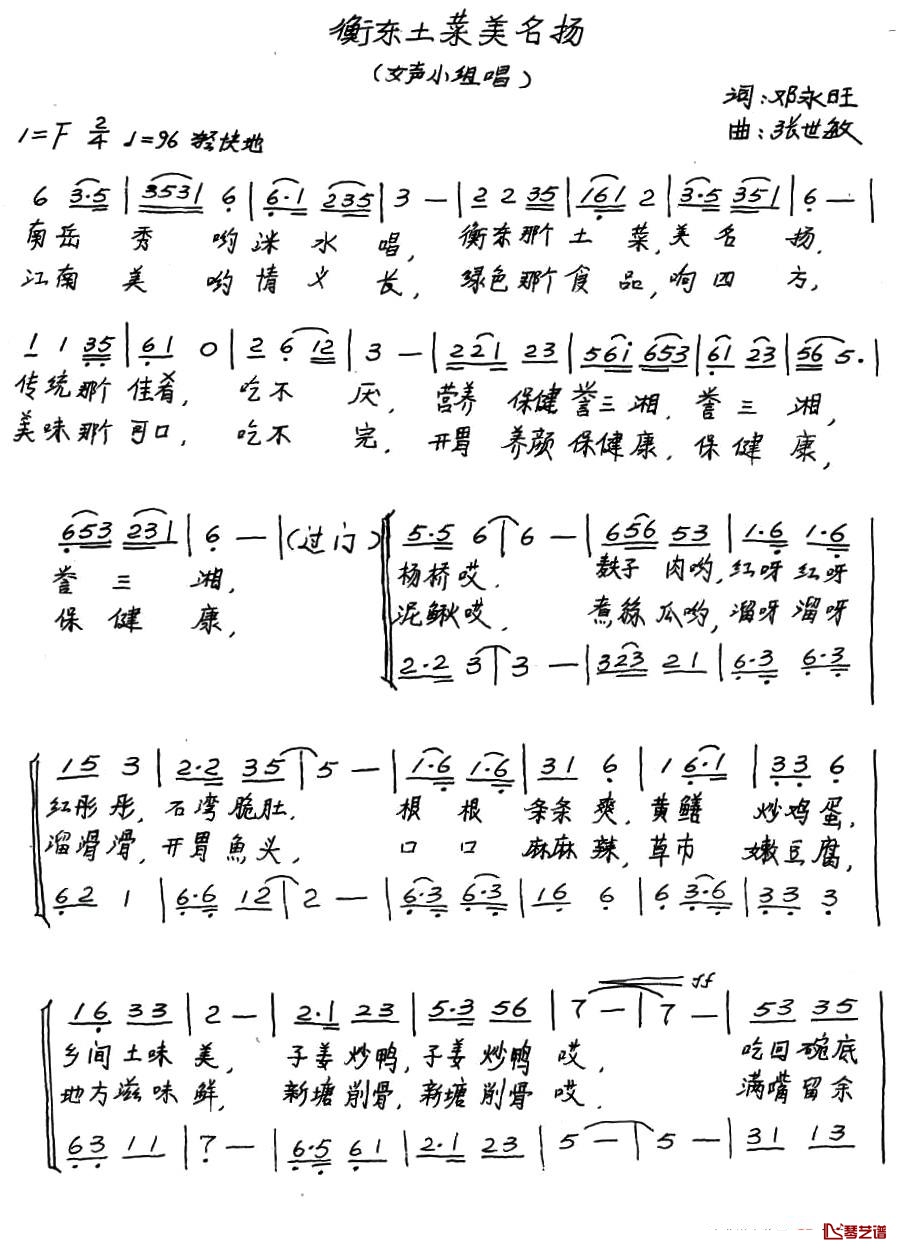 衡东土菜美名扬
（女声小组唱）
词：邓永旺
曲：张世敏
1=F 2/4 ♩=96 轻快地
6 3·5 | 3531 6 | 6·1 235 | 3 — | 2 2 35 | 161 2 | 3·5 351 | 6 — |
南岳 秀 哟 洣 水 唱， 衡东 那个 土 菜，美 名 扬，
江南 美 哟 情 义 长， 绿色 那个 食 品，响 四 方，
1 1 35 | 61 0 | 2 6 12 | 3 — | 221 23 | 561 653 | 61 23 | 56 5· |
传统 那个 佳肴， 吃不 厌， 营养 保健 誉三湘，誉 三 湘，
美味 那个 可口， 吃不 完， 开胃 养颜 保健康，保 健 康，
653 231 | 6 — |（过门） 5·5 6 | 6 — | 656 53 | 1·6 1·6
誉 三 湘， 杨桥哎． 麸子 肉哟，红呀 红呀
保 健 康， 泥鳅哎． 煮丝 瓜哟，溜呀 溜呀
2·2 3 | 3 — | 323 21 | 6·3 6·3
15 3 | 2·2 35 | 5 — | 1·6 1·6 | 31 6 | 1 6·1 | 33 6
红彤彤，石湾脆肚． 根 根 条条 爽，黄鳝 炒鸡蛋，
溜滑滑，开胃魚头， 口 口 麻麻 辣，草市 嫩豆腐，
62 1 | 6·6 12 | 2 — | 6·3 6·3 | 16 6 | 6 3·6 | 33 3
16 33 | 2 — | 2·1 23 | 5·3 56 | 7 — | 7 — | 53 35
ff
乡间土味美， 子姜炒鸭，子姜炒鸭哎． 吃回碗底
地方滋味鲜， 新塘削骨，新塘削骨哎． 满嘴留余
63 11 | 7 — | 6·5 61 | 2·1 23 | 5 — | 5 — | 31 13
琴艺谱